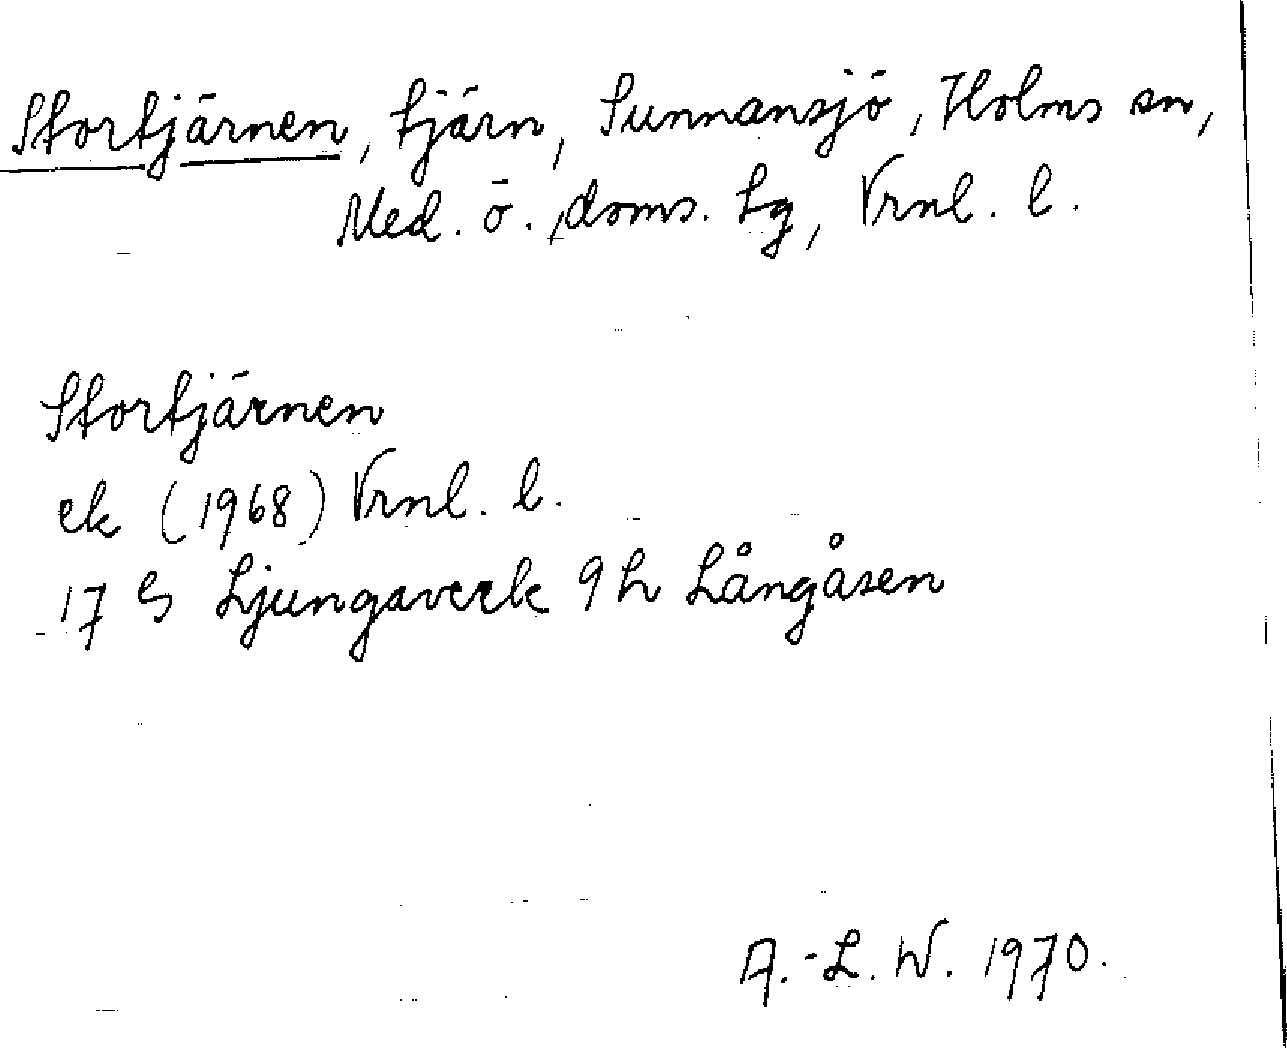 Stortjärnen, tjärn, Sunnansjö, Holms sn,
Med. ö. doms. tg, Vrnl. l.
Stortjärnen
ek (1968) Vrnl. l.
17 G Ljungaverk 9 h Långåsen
A.-L. W. 1970.